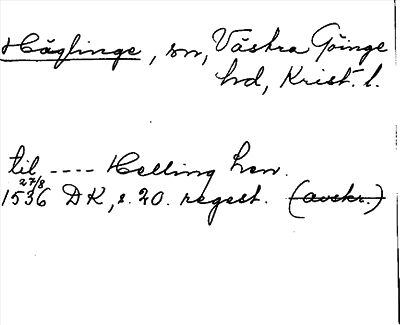 Häglinge, sn, Västra Göinge
hd, Krist. l.
til ---- Helling hen.
27/8
1536 DK, s. 20. regest. (avskr.)